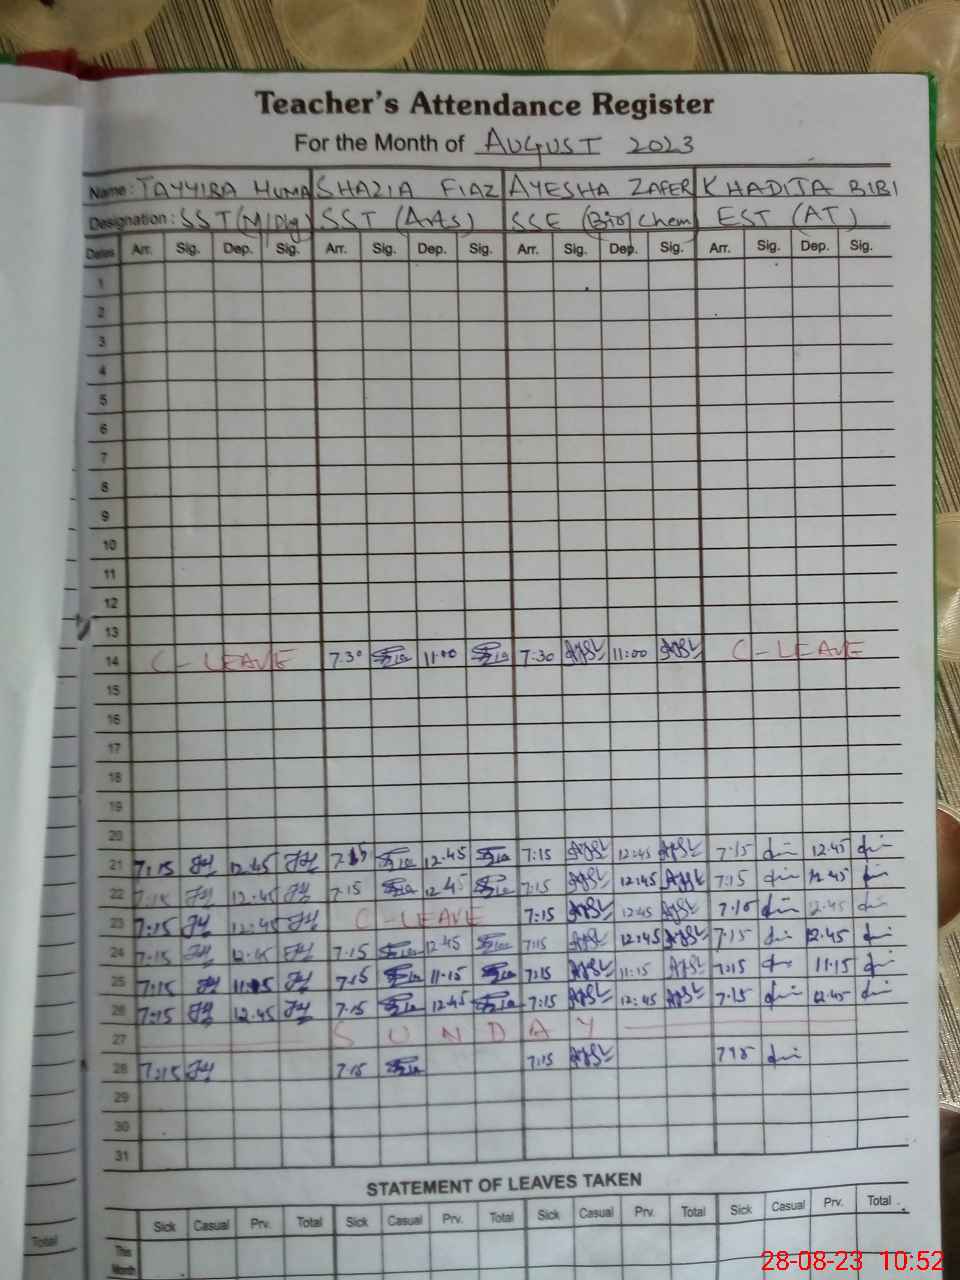 Teacher's Attendance Register
For the Month of AUGUST 2023
Name: TAYYIBA HUMA SHAZIA FIAZ AYESHA ZAFER KHADIJA BIBI
Designation: SST (M/Phy) SST (Arts) SSE (Bio/Chem) EST (AT)
Dates Arr. Sig. Dep. Sig. Arr. Sig. Dep. Sig. Arr. Sig. Dep. Sig. Arr. Sig. Dep. Sig.
1
2
3
4
5
6
7
8
9
10
11
12
13
14 C-LEAVE 7.30 11:00 7:30 11:00 C-LEAVE
15
16
17
18
19
20
21 7:15 12.45 12.45 7:15 12:45 7:15 12.45
22 7:15 12.45 7:15 12.45 7:15 12:45 7:15 12.45
23 7:15 12:45 C-LEAVE 7:15 12:45 7:15 2.45
24 7:15 12.45 7.15 12.45 7:15 12:45 7:15 12.45
25 7:15 11:15 7.15 11.15 7:15 11:15 7:15 11.15
26 7:15 12.45 7.15 12.45 7:15 12:45 7:15 12.45
27 SUNDAY
28 7:15 7.15 7:15
29
30
31
STATEMENT OF LEAVES TAKEN
Sick Casual Prv. Total Sick Casual Prv. Total Sick Casual Prv. Total Sick Casual Prv. Total
This Month
Total
28-08-23 10:52